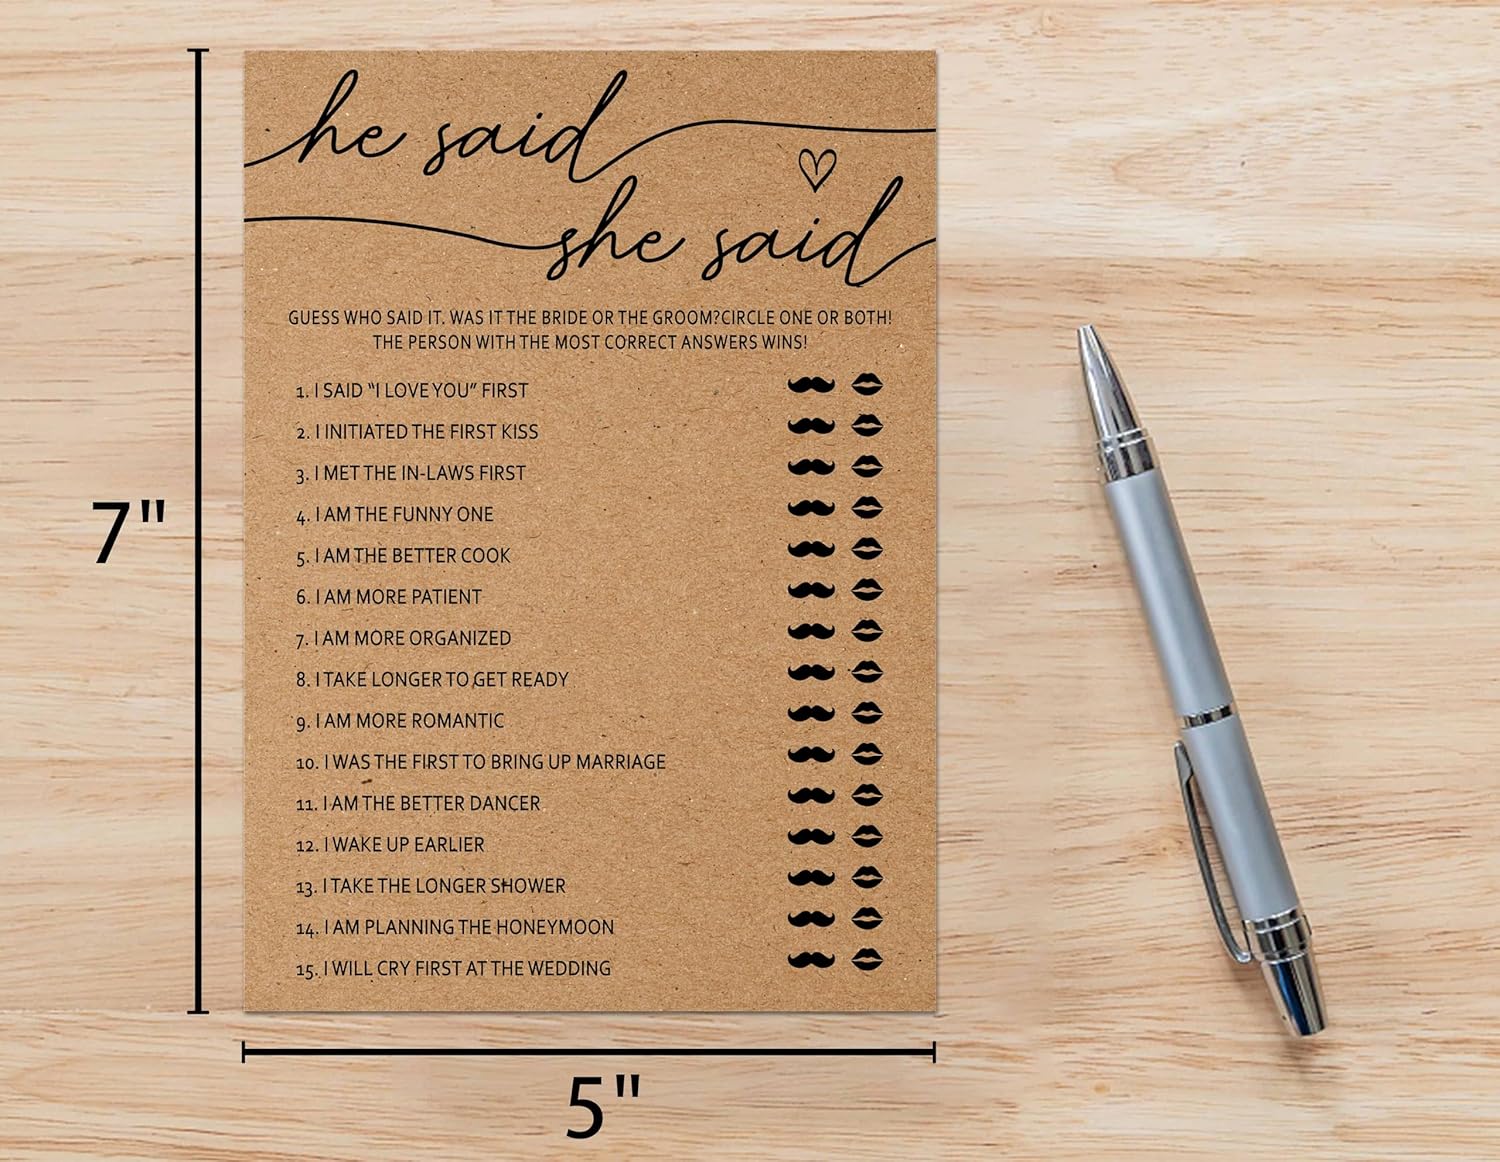 he said
she said
GUESS WHO SAID IT. WAS IT THE BRIDE OR THE GROOM?CIRCLE ONE OR BOTH!
THE PERSON WITH THE MOST CORRECT ANSWERS WINS!
1. I SAID “I LOVE YOU” FIRST
2. I INITIATED THE FIRST KISS
3. I MET THE IN-LAWS FIRST
4. I AM THE FUNNY ONE
5. I AM THE BETTER COOK
6. I AM MORE PATIENT
7. I AM MORE ORGANIZED
8. I TAKE LONGER TO GET READY
9. I AM MORE ROMANTIC
10. I WAS THE FIRST TO BRING UP MARRIAGE
11. I AM THE BETTER DANCER
12. I WAKE UP EARLIER
13. I TAKE THE LONGER SHOWER
14. I AM PLANNING THE HONEYMOON
15. I WILL CRY FIRST AT THE WEDDING
7"
5"